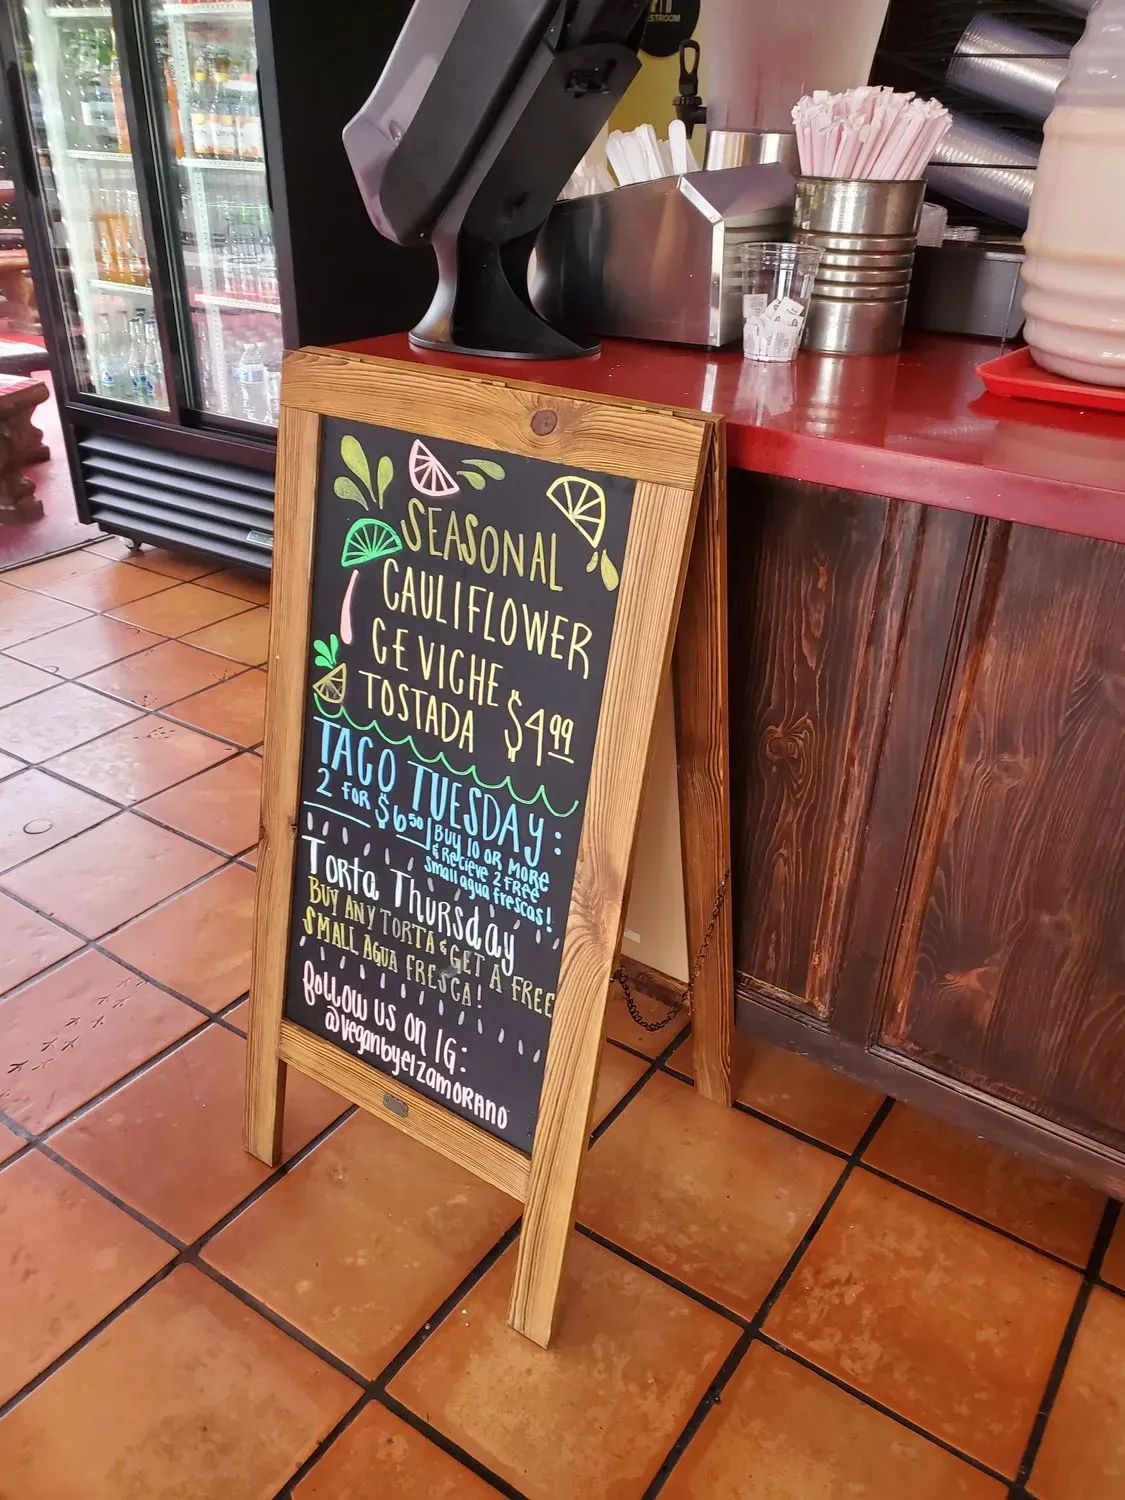 RESTROOM
SEASONAL
CAULIFLOWER
CEVICHE
TOSTADA $4.99
TACO TUESDAY:
2 FOR $6.50
BUY 10 OR MORE
& RECIEVE 2 FREE
small agua frescas!
Torta Thursday
BUY ANY TORTA & GET A FREE
SMALL AGUA FRESCA!
follow us on IG:
@veganbyelzamorano